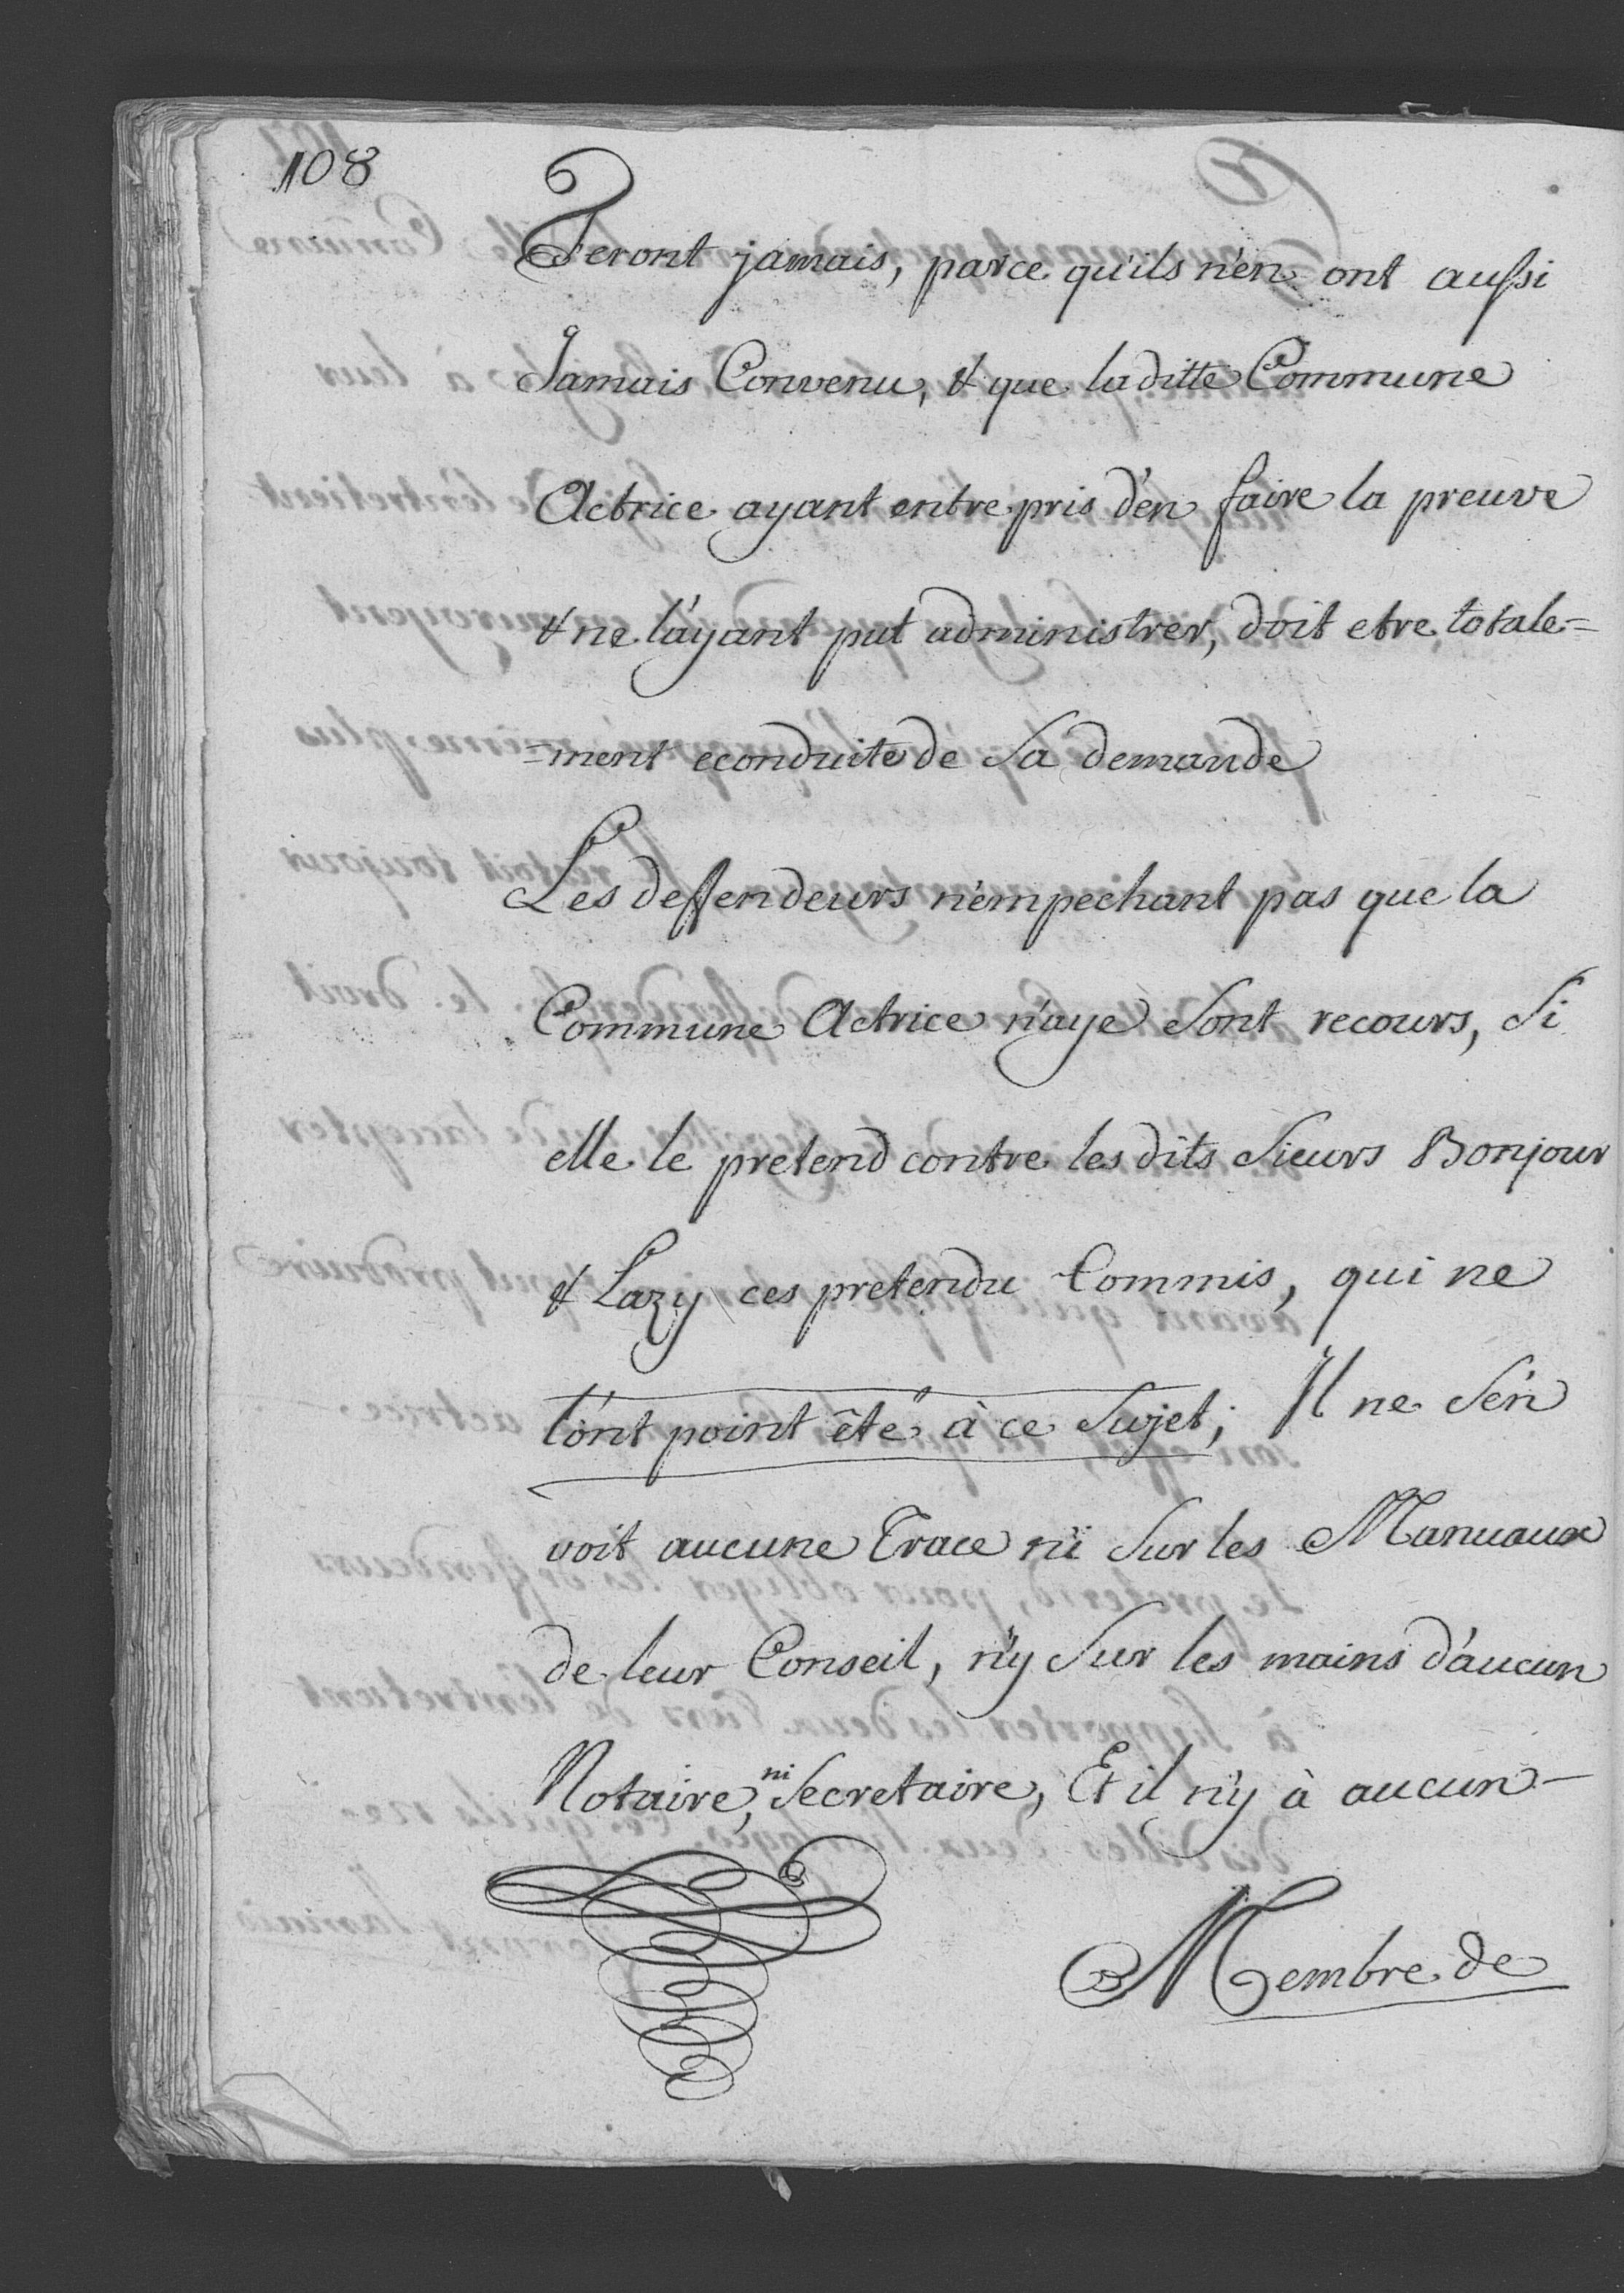 108
Feront jamais, parce qu'ils n'en ont aussi
Jamais Convenu, & que laditte Commune
Actrice ayant entrepris d'en faire la preuve
& ne l'ayant put administrer, doit etre totale=
=ment econduite de Sa demande
Les deffendeurs n'empechant pas que la
Commune Actrice n'aye Sont recours, Si
elle le pretend contre les dits Sieurs Bonjour
& Lazy ces pretendu Commis, qui ne
l'ont point êté à ce Sujet; Il ne S'en
voit aucune Trace ni Sur les Manuaux
de leur Conseil, n'y Sur les mains d'aucun
Notaire, ni Secretaire, Et il n'y à aucun
Membre de